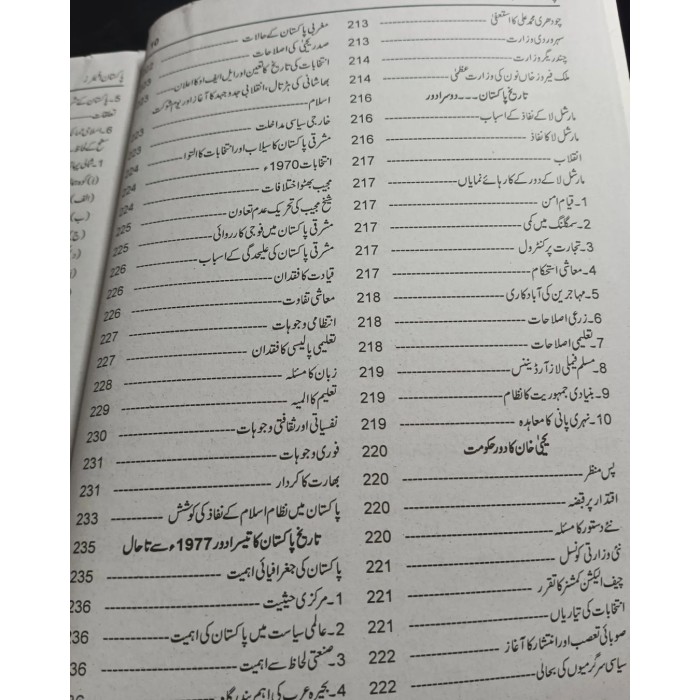 چودھری محمد علی کا استعفیٰ 213
سہروردی وزارت 213
چندریگر وزارت 214
ملک فیروز خاں نون کی وزارت عظمیٰ 214
تاریخ پاکستان۔۔۔دوسرا دور 216
مارشل لاء کے نفاذ کے اسباب 216
مارشل لاء کا نفاذ 216
انقلاب 217
مارشل لاء کے دور کے کارہائے نمایاں 217
1۔ قیام امن 217
2۔ سمگلنگ میں کمی 217
3۔ تجارت پر کنٹرول 217
4۔ معاشی استحکام 217
5۔ مہاجرین کی آباد کاری 218
6۔ زرعی اصلاحات 218
7۔ تعلیمی اصلاحات 218
8۔ مسلم فیملی لاز آرڈیننس 219
9۔ بنیادی جمہوریت کا نظام 219
10۔ نہری پانی کا معاہدہ 219
یحییٰ خان کا دور حکومت 220
پس منظر 220
اقتدار پر قبضہ 220
نئے دستور کا مسئلہ 220
نئی وزارتی کونسل 221
چیف الیکشن کمشنر کا تقرر 221
انتخابات کی تیاریاں 221
صوبائی تعصب اور انتشار کا آغاز 222
سیاسی سرگرمیوں کی بحالی 222
مغربی پاکستان کے حالات
صدر یحییٰ کی اصلاحات
انتخابات کی تاریخ کا تعین اور ایل ایف او کا اعلان
بھاشانی کی ہڑتال، انقلابی جدوجہد کا آغاز اور یوم شوکت
اسلام 223
خارجی سیاسی مداخلت 223
مشرقی پاکستان کا سیلاب اور انتخابات کا التوا 223
انتخابات 1970ء 224
مجیب بھٹو اختلافات 224
شیخ مجیب کی تحریک عدم تعاون 224
مشرقی پاکستان میں فوجی کارروائی 225
مشرقی پاکستان کی علیحدگی کے اسباب 225
قیادت کا فقدان 226
معاشی تفاوت 226
انتظامی وجوہات 226
تعلیمی پالیسی کا فقدان 227
زبان کا مسئلہ 227
تعلیم کا المیہ 228
نفسیاتی اور ثقافتی وجوہات 229
فوری وجوہات 230
بھارت کا کردار 231
پاکستان میں نظام اسلام کے نفاذ کی کوشش 231
تاریخ پاکستان کا تیسرا دور 1977ء سے تا حال 233
پاکستان کی جغرافیائی اہمیت 235
1۔ مرکزی حیثیت 235
2۔ عالمی سیاست میں پاکستان کی اہمیت 236
3۔ صنعتی لحاظ سے اہمیت 236
4۔ بحیرہ عرب کی اہم بندرگاہ 236